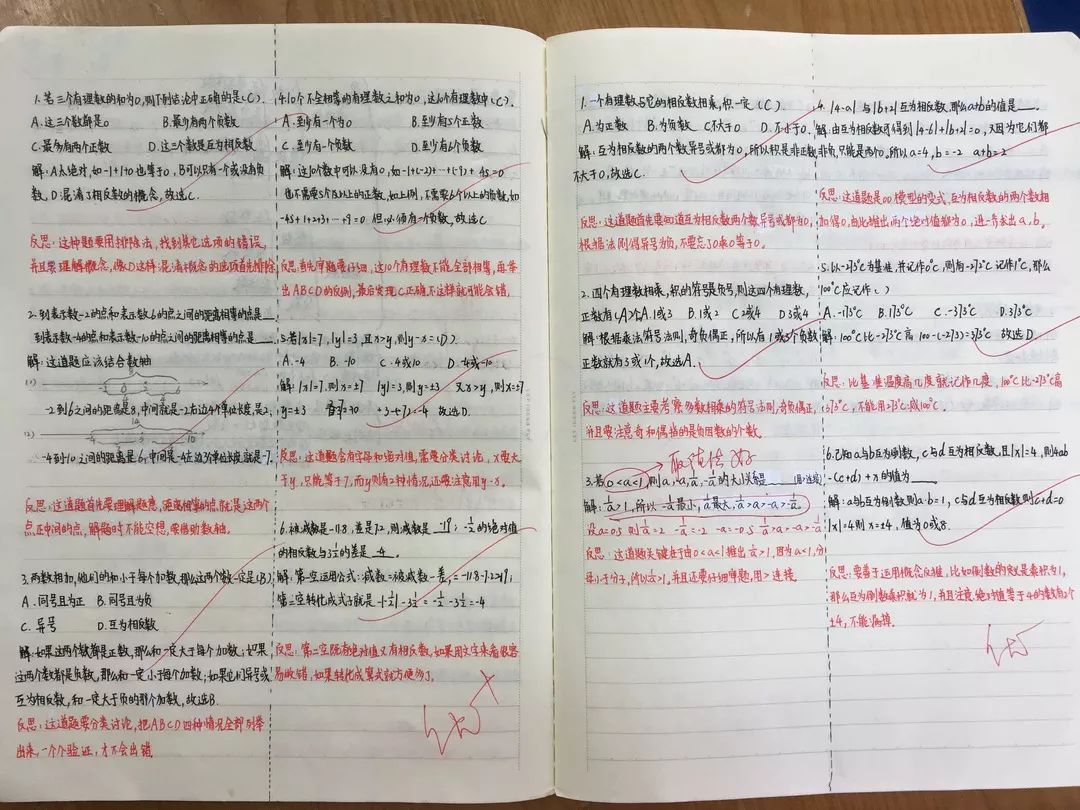 1.若三个有理数的和为0,则下列结论中正确的是(C).
A.这三个数都是0 B.最少有两个负数
C.最多有两个正数 D.这三个数是互为相反数
解:A太绝对,如-1+1+0也等于0,B可以只有一个或没有负
数,D混淆了相反数的概念,故选C.
反思:这种题要用排除法,找到其它选项的错误,
并且要理解概念,像D这样混淆概念的选项首先排除
2.到表示数-2的点和表示数6的点之间的距离相等的点是
到表示数-4的点和表示数-10的点之间的距离相等的点是
解:这道题应该结合数轴
(1)
8
-2 0 6
-2到6之间的距离是8,中间就是-2右边4个单位长度,是2,
(2)
-4 10
-4到-10之间的距离是6,中间是-4左边3个单位长度就是-7.
反思:这道题首先要理解题意,距离相等的点就是这两个
点正中间的点,解题时不能空想,要借助数轴.
3.两数相加,他们的和小于每个加数,那么这两个数一定是(B)
A.同号且为正 B.同号且为负
C.异号 D.互为相反数
解:如果这两个数都是正数,那么和一定大于每个加数;如果
这两个数都是负数,那么和一定小于每个加数;如果它们异号或
互为相反数,和一定大于负的那个加数,故选B.
反思:这道题要分类讨论,把ABCD四种情况全部列举
出来,一个个验证,才不会出错.
4.10个不全相等的有理数之和为0,这10个有理数中(C).
A.至少有一个为0 B.至少有5个正数
C.至少有一个负数 D.至少有6个负数
解:这10个数中可以没有0,如-1+(-2)+…+(-9)+45=0
也不需要5个及以上的正数,如上例,不需要6个以上的负数,如
-45+1+2+3+…+9=0 但必须有一个负数,故选C
反思:首先审题要仔细,这10个有理数不能全部相等,再举
出ABCD的反例,最后发现C正确.不这样就可能会错.
5.若|x|=7,|y|=3,且x>y,则y-x=(D).
A.-4 B.-10 C.4或10 D.-4或-10
解:|x|=7,则x=±7 |y|=3,则y=±3 又x>y,则x=+7
y=±3 -3-(+7)=-10 +3-(+7)=-4 故选D.
反思:这道题含有字母和绝对值,需要分类讨论,x要大
于y,只能等于7,而y则有2种情况,还要注意用y-x.
6.被减数是-11.8,差是7.2,则减数是-19;-½的绝对值
的相反数与3½的差是 -4 .
解:第一空运用公式:减数=被减数-差,=-11.8-7.2=-19;
第二空转化成式子就是-|-½|-3½=-½-3½=-4
反思:第二空既有绝对值又有相反数,如果用文字来看很容
易做错,如果转化成算式就方便多了.
1.一个有理数与它的相反数相乘,积一定(C)
A.为正数 B.为负数 C.不大于0 D.不小于0.
解:互为相反数的两个数异号或都为0,所以积是非正数,
不大于0,故选C.
反思:这道题首先要知道互为相反数两个数异号或都为0,
根据法则得异号为负,不要忘了0乘0等于0.
2.四个有理数相乘,积的符号是负号,则这四个有理数,
正数有(A)个A.1或3 B.1或2 C.2或4 D.3或4
解:根据乘法符号法则,奇负偶正,所以有1或3个负数
正数就有3或1个,故选A.
反思:这道题主要考察多数相乘的符号法则,奇负偶正,
并且要注意奇和偶指的是负因数的个数.
取值法 好
3.若0<a<1,则a,-a,1/a,-1/a的大小关系是 (用>连接)
解:1/a>1,所以-1/a最小,1/a最大,1/a>a>-a>-1/a.
设a=0.5 则1/a=2 -1/a=-2 -a=-0.5 1/a>a>-a>-1/a
反思:这道题关键在于由0<a<1推出1/a>1,因为a<1,分
母小于分子,所以1/a>1.并且还要仔细审题,用>连接.
4.|4-a|与|b+2|互为相反数,那么a+b的值是
解:由互为相反数可得到|4-a|+|b+2|=0,又因为它们都
非负,只能是两个0,所以a=4,b=-2 a+b=2
反思:这道题是00模型的变式,互为相反数的两个数相
加得0,由此推出两个绝对值都为0,进一步求出a,b.
5.以-273℃为基准,并记作0℃,则有-272℃记作1℃,那么
100℃应记作( )
A.-173℃ B.173℃ C.-373℃ D.373℃
100℃比-273℃高100-(-273)=373℃ 故选D
反思:比基准温度高几度就记作几度,100℃比-273℃高
373℃,不能用273℃减100℃.
6.已知a与b互为倒数,c与d互为相反数,且|x|=4,则4ab
-(c+d)+x的值为
解:a与b互为倒数则a·b=1,c与d互为相反数则c+d=0
|x|=4则x=±4,值为0或8.
反思:要善于运用概念反推,比如倒数的定义是乘积为1,
那么互为倒数乘积就为1,并且注意绝对值等于4的数有2个
±4,不能漏掉.